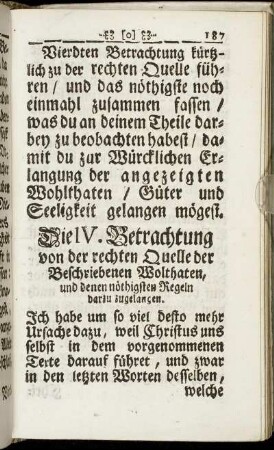 [0] 187
Vierdten Betrachtung kürtz-
lich zu der rechten Quelle füh-
ren / und das nöthigste noch
einmahl zusammen fassen /
was du an deinem Theile dar-
bey zu beobachten habest / da-
mit du zur Würcklichen Er-
langung der angezeigten
Wohlthaten / Güter und
Seeligkeit gelangen mögest.
Die IV. Betrachtung
von der rechten Quelle der
Beschriebenen Wolthaten,
und denen nöthigsten Regeln
darzu zugelangen.
Ich habe um so viel desto mehr
Ursache dazu, weil Christus uns
selbst in dem vorgenommenen
Texte darauf führet, und zwar
in den letzten Worten desselben,
welche